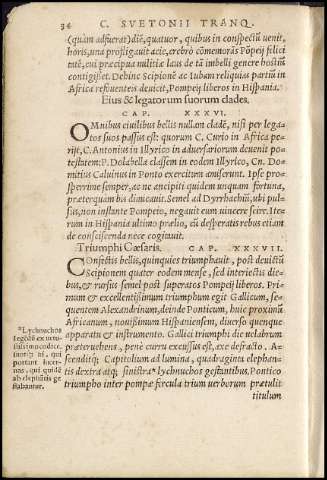 34 C. SVETONII TRANQ.
(quàm adfuerat) diē, quatuor, quibus in conspectū uenit,
horis, una profligauit acie, crebrò cōmemorās Pōpeij felici
tatē, cui præcipua militiæ laus de tā imbelli genere hostiū
contigisset. Dehinc Scipionē ac Iubam reliquias partiū in
Africa refouenteis deuicit, Pompeij liberos in Hispania.
Eius & legatorum suorum clades.
CAP. XXXVI.
OMnibus ciuilibus bellis nullam cladē, nisi per lega
tos suos passus est: quorum C. Curio in Africa pe-
rijt, C. Antonius in Illyrico in aduersariorum deuenit po
testatem: P. Dolabella classem in eodem Illyrico, Cn. Do
mitius Caluinus in Ponto exercitum amiserunt. Ipse pro-
sperrimè semper, ac ne ancipiti quidem unquam fortuna,
præterquàm bis dimicauit. Semel ad Dyrrhachiū, ubi pul-
sus, non instante Pompeio, negauit eum uincere scire. Ite-
rum in Hispania ultimo prælio, cū desperatis rebus etiam
de consciscenda nece cogitauit.
Triumphi Cæsaris. CAP. XXXVII.
COnfectis bellis, quinquies triumphauit, post deuictū
Scipionem quater eodem mense, sed interiectis die-
bus, & rursus semel post superatos Pompeij liberos. Pri-
mum & excellentissimum triumphum egit Gallicum, se-
quentem Alexandrinum, deinde Ponticum, huic proximū
Africanum, nouissimum Hispaniensem, diuerso quenque
apparatu & instrumento. Gallici triumphi die uelabrum
præteruehens, penè curru excussus est, axe defracto. A-
scenditq́; Capitolium ad lumina, quadraginta elephan-
tis dextra atq; sinistra* lychnuchos gestantibus. Pontico
triumpho inter pompæ fercula trium uerborum prætulit
titulum
*Lychnuchos
legēdū ex uetu-
stissimo codice.